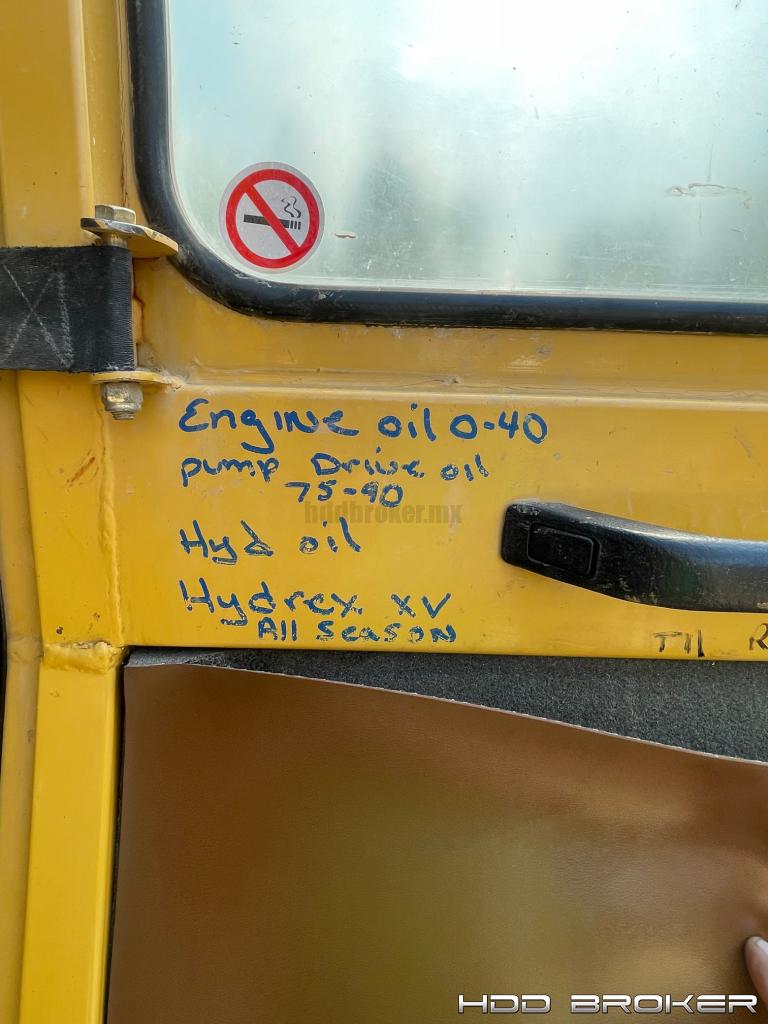 Engine oil 0-40
pump Drive oil
75-90
hddbroker.mx
Hyd oil
Hydrex XV
All Season
HDD BROKER